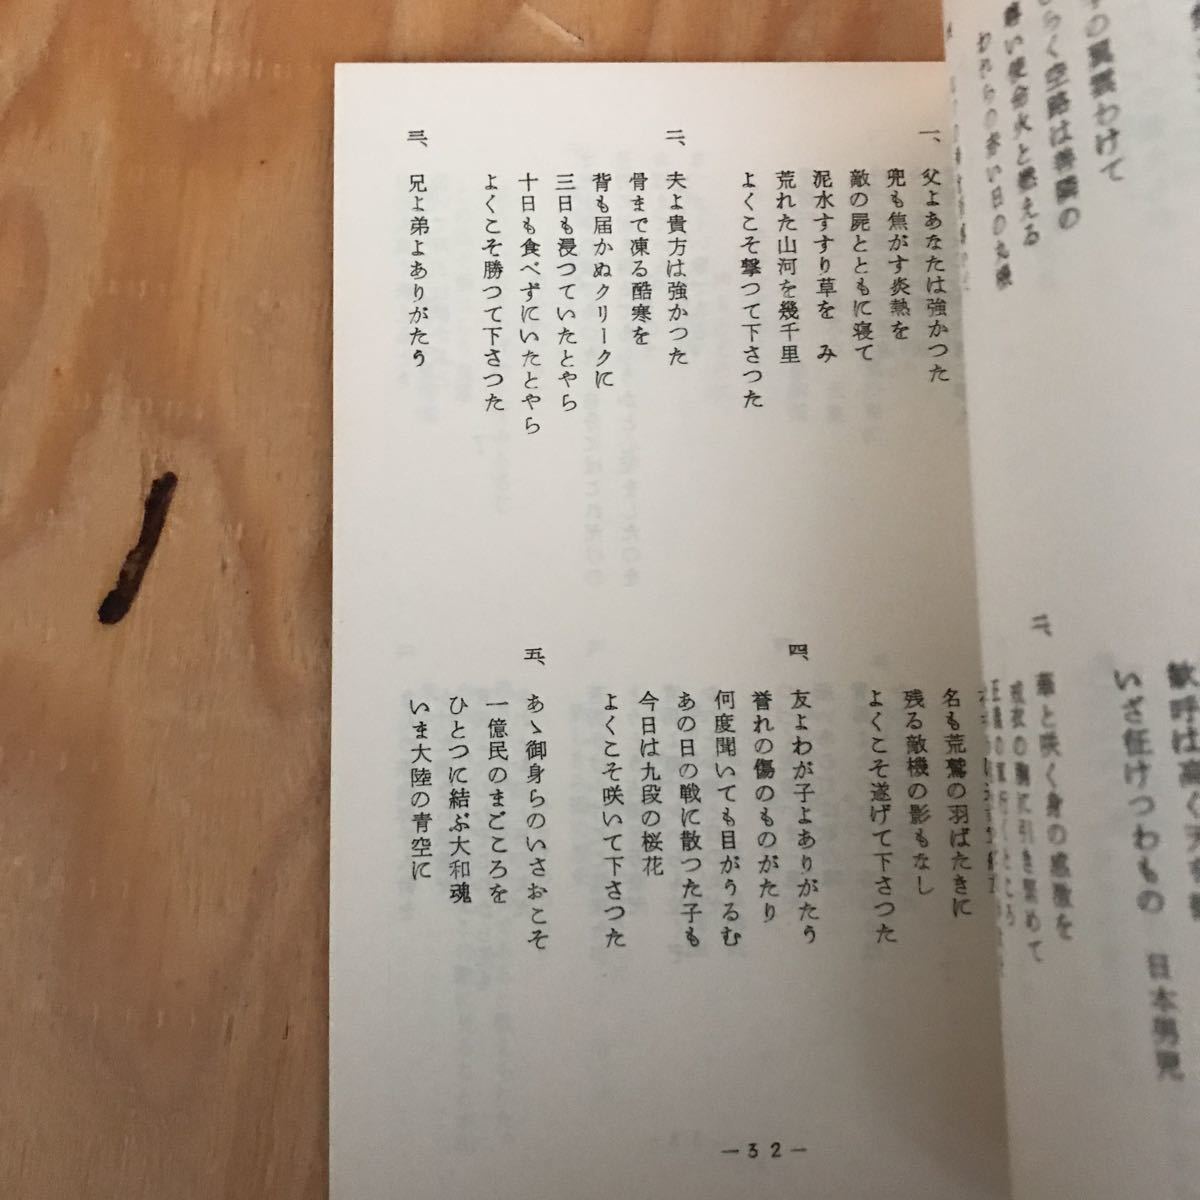 一、父よあなたは強かつた
兜も焦がす炎熱を
敵の屍とともに寝て
泥水すすり草を　み
荒れた山河を幾千里
よくこそ撃つて下さつた
二、夫よ貴方は強かつた
骨まで凍る酷寒を
背も届かぬクリークに
三日も浸つていたとやら
十日も食べずにいたとやら
よくこそ勝つて下さつた
三、兄よ弟よありがたう
名も荒鷲の羽ばたきに
残る敵機の影もなし
よくこそ遂げて下さつた
四、友よわが子よありがたう
誉れの傷のものがたり
何度聞いても目がうるむ
あの日の戦に散つた子も
今日は九段の桜花
よくこそ咲いて下さつた
五、あゝ御身らのいさおこそ
一億民のまごころを
ひとつに結ぶ大和魂
いま大陸の青空に
—32—
わけて
らく空路は善隣の
い使命火と燃える
二、華と咲く身の感激を
戎衣の胸に引き緊めて
歓呼は高く天
いざ征けつわもの　日本男児